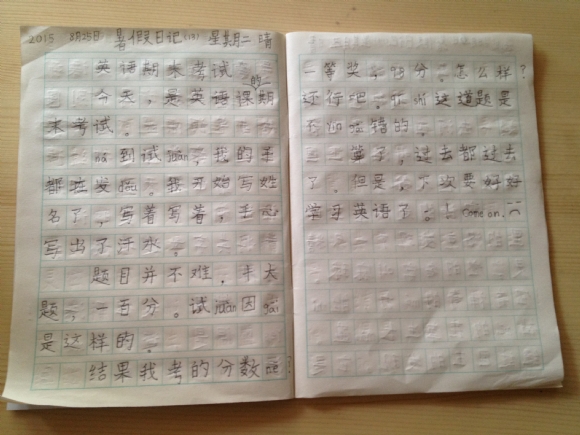 2015 8月25日 暑假日记(13) 星期二 晴
英语期末考试
今天,是英语课的期
末考试。
na到试juan,我的手
都在发dou。我开始写姓
名了,写着写着,手心
写出了汗水。
题目并不难,十大
题,一百分。试juan因gai
是这样的。
结果我考的分数
一等奖,98分。怎么样?
还行吧。这道题是
不 错的。
算了,过去都过去
了。但是,下次要好好
学习英语了。! Come on.